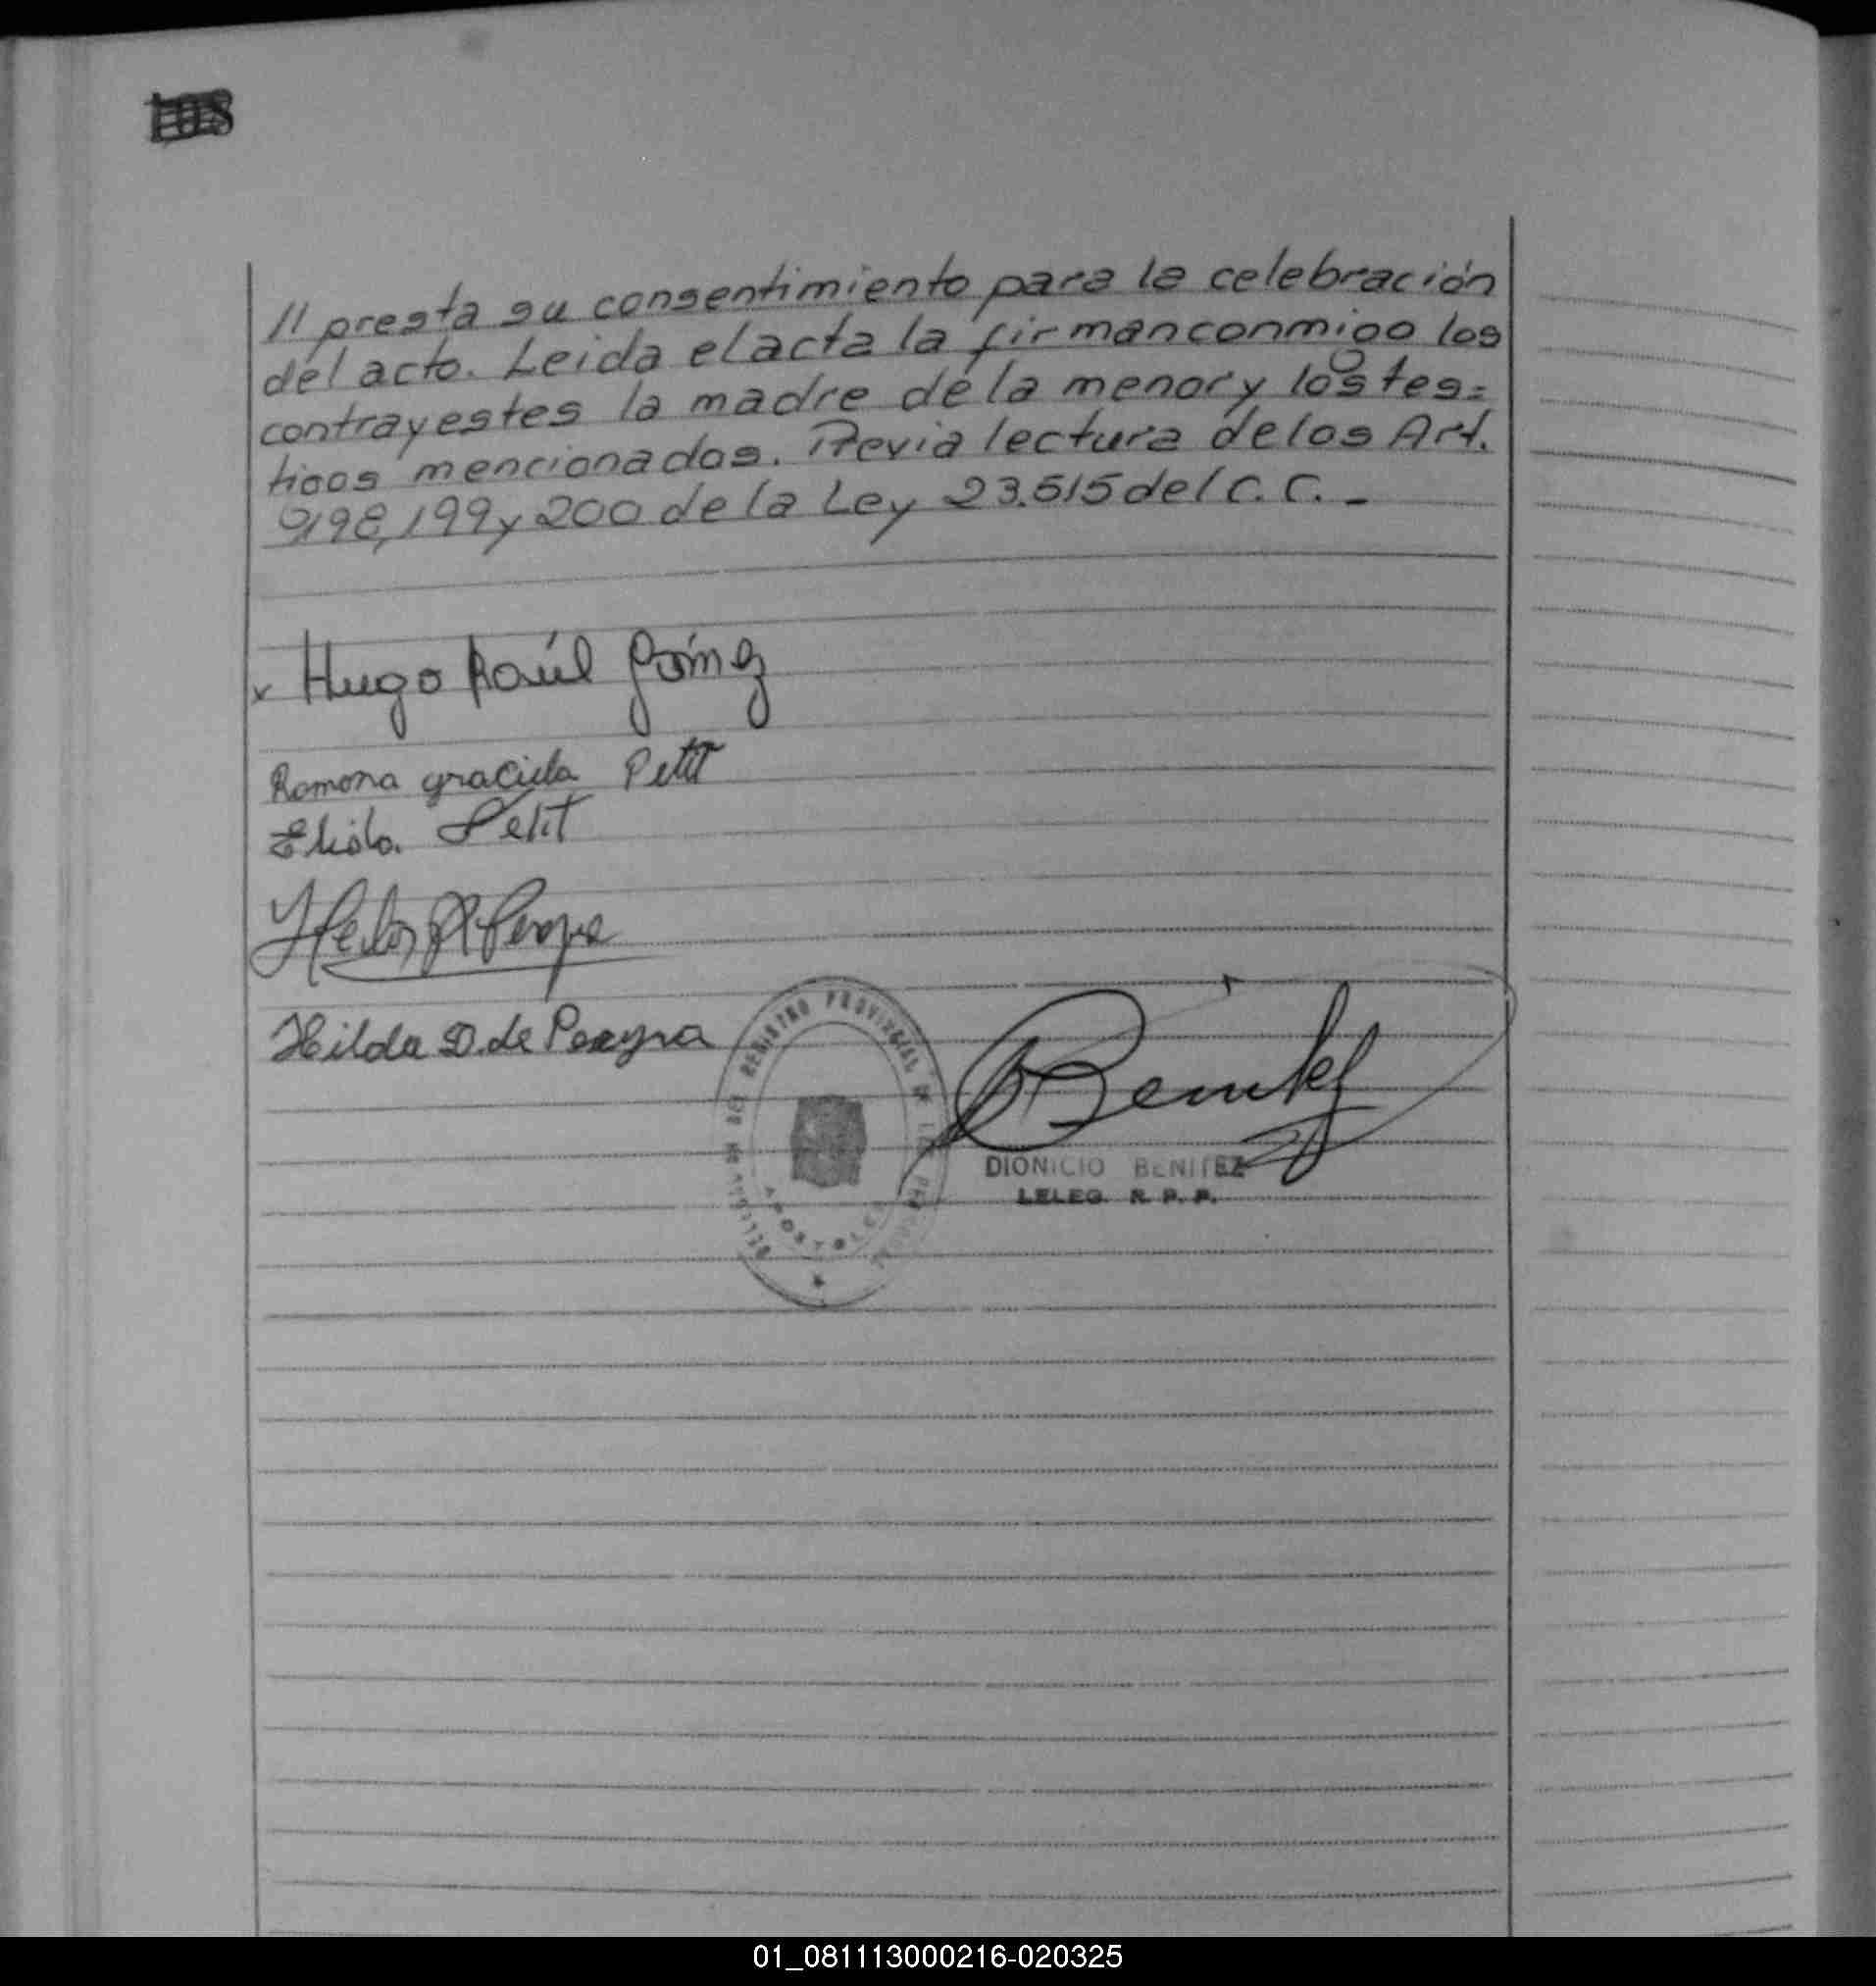 108
// presta su consentimiento para la celebración
del acto. Leida el acta la firman conmigo los
contrayestes la madre de la menor y los tes=
tigos mencionados. Previa lectura de los Art.
198, 199 y 200 de la Ley 23.515 del C. C. -
x Hugo Raúl
Ramona graciela Petit
Elida Petit
Hilda D. de Pereyra
REGISTRO PROVINCIAL DE LAS PERSONAS
APOSTOLES
Benitez
DIONICIO BENITEZ
DELEG. R. P. P.
01_081113000216-020325